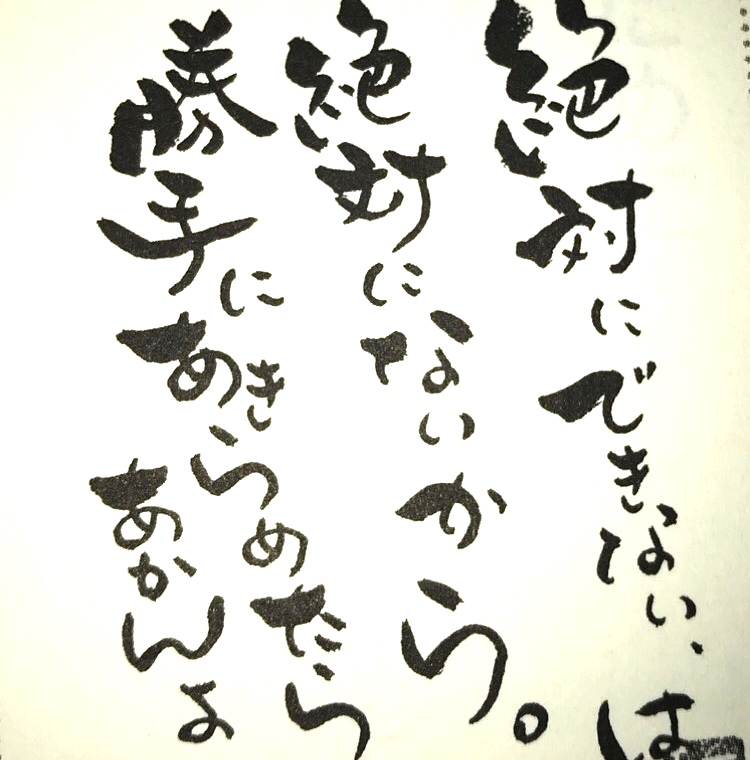 絶対にできない、は
絶対にないから。
勝手にあきらめたら
あかんよ